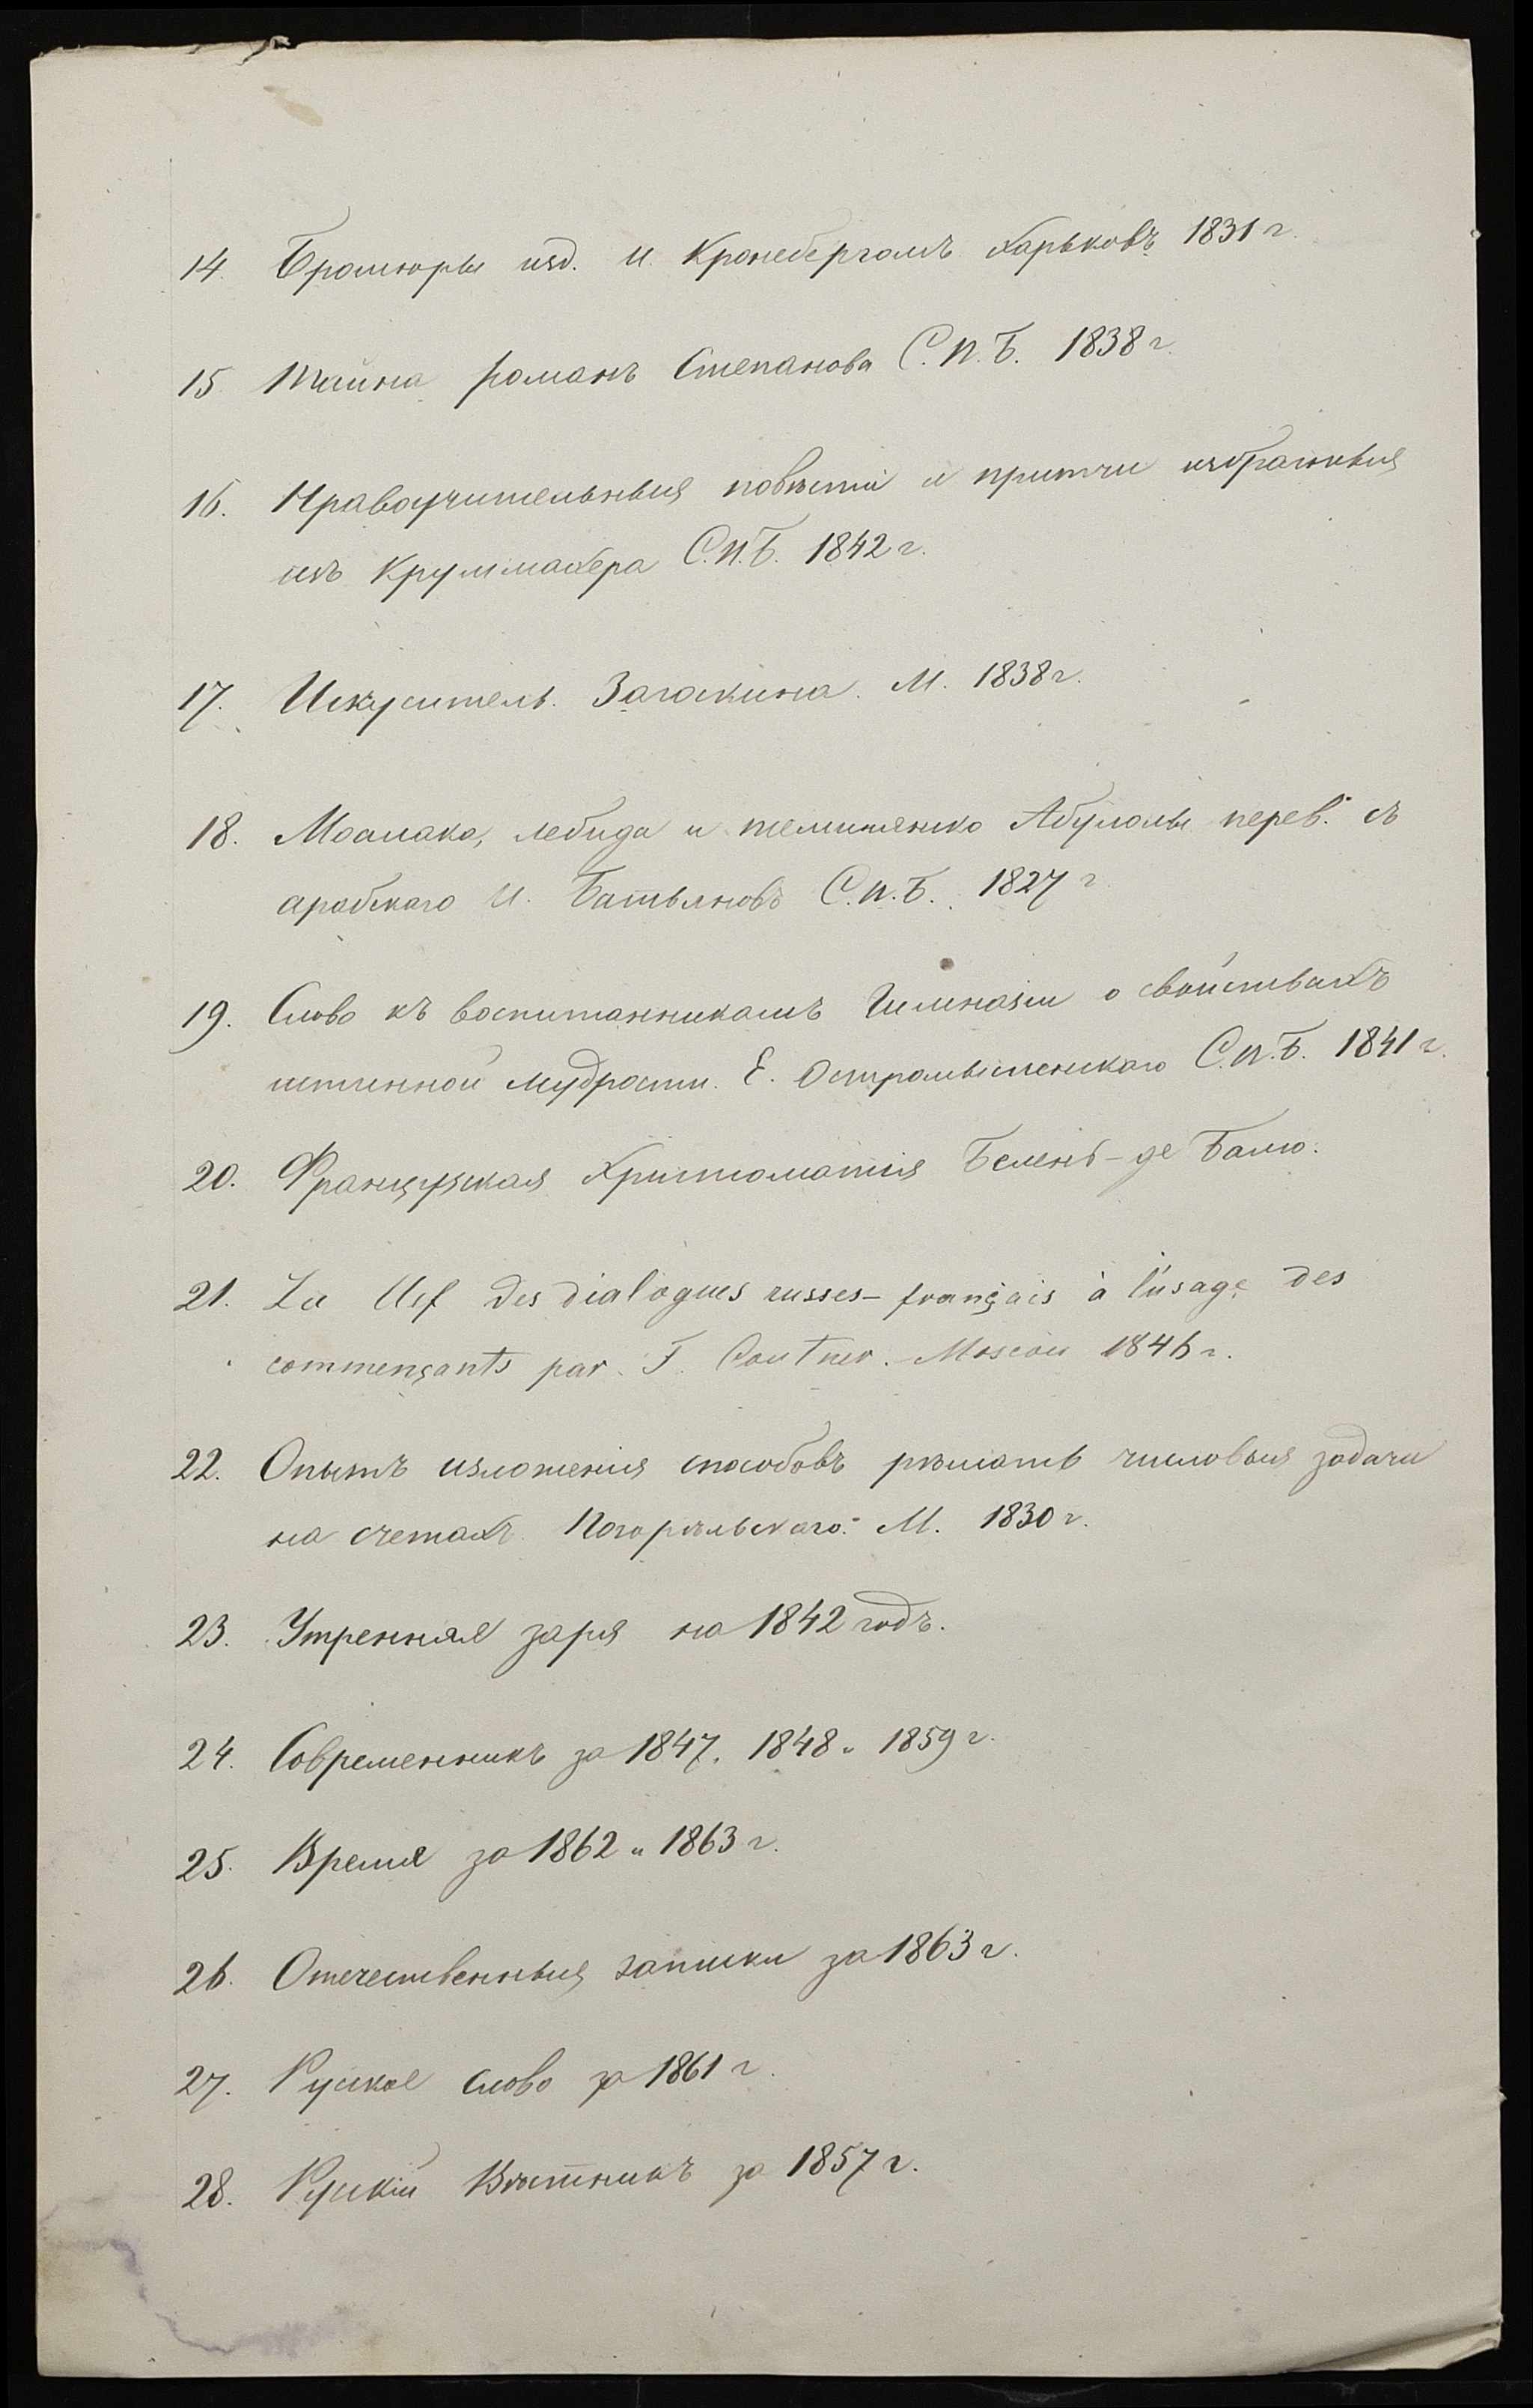 14. Брошюры изд. И. Кронебергомъ Харьковъ 1831 г.
15 Тайна романъ Степанова С.П.Б. 1838 г.
16. Нравоучительныя повѣсти и притчи избранныя
изъ Круммахера С.П.Б. 1842 г.
17. Искуситель. Загоскина. М. 1838 г.
18. Моаллака, Лебида и перев. съ
арабскаго И. Ботьяновъ С.П.Б. 1827 г
19. Слово къ воспитанникамъ Гимназіи о свойствахъ
истинной мудрости. Е. Остромысленскаго С.П.Б. 1841 г.
20. Французская Христоматія Белень-де Балю.
21. La Clef des dialogues russes-français à l'usage des
commençants par. F. Moscou 1846 г.
22. Опытъ изложенія способовъ рѣшать числовыя задачи
на счетахъ Погорѣльскаго. М. 1830 г.
23. Утренняя заря на 1842 годъ.
24. Современникъ за 1847. 1848 и 1859 г.
25. Время за 1862 и 1863 г.
26. Отечественныя записки за 1863 г.
27. Руское слово за 1861 г.
28. Рускій Вѣстникъ за 1857 г.